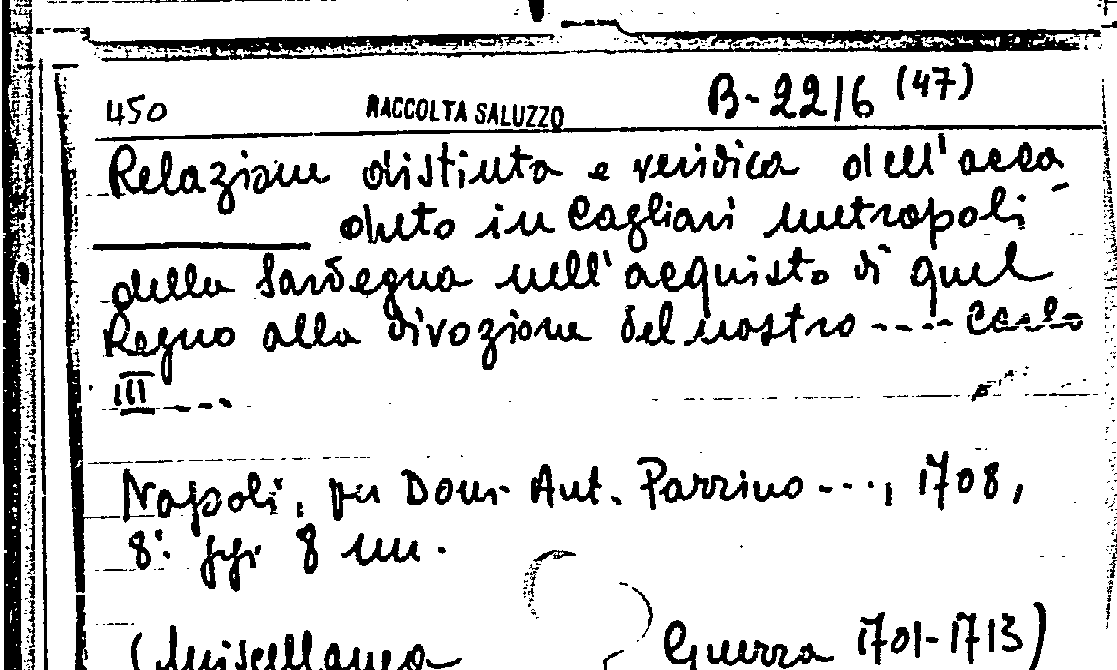 450 RACCOLTA SALUZZO B-2216 (47)
Relazione distinta e veridica dell'acca
duto in Cagliari metropoli
della Sardegna nell'acquisto di quel
Regno alla divozione del nostro ---- Carlo
III ---
Napoli, per Dom. Ant. Parrino ---, 1708,
8°. pp. 8 nn.
(Miscellanea Guerra 1701-1713)